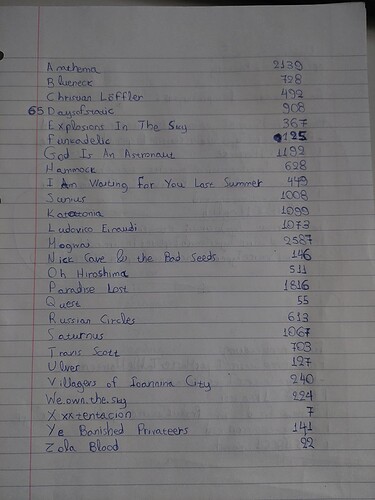 Anathema 2139
Blueneck 728
Christian Löffler 492
65 Daysofstatic 908
Explosions In The Sky 367
Funkadelic 125
God Is An Astronaut 1192
Hammock 628
I Am Waiting For You Last Summer 449
Junius 1008
Katatonia 1099
Ludovico Einaudi 1073
Mogwai 2587
Nick Cave & the Bad Seeds 146
Oh Hiroshima 511
Paradise Lost 1816
Quest 55
Russian Circles 613
Saturnus 1067
Travis Scott 703
Ulver 127
Villagers of Ioannina City 240
We.own.the.sky 224
Xxxtentacion 7
Ye Banished Privateers 141
Zola Blood 22